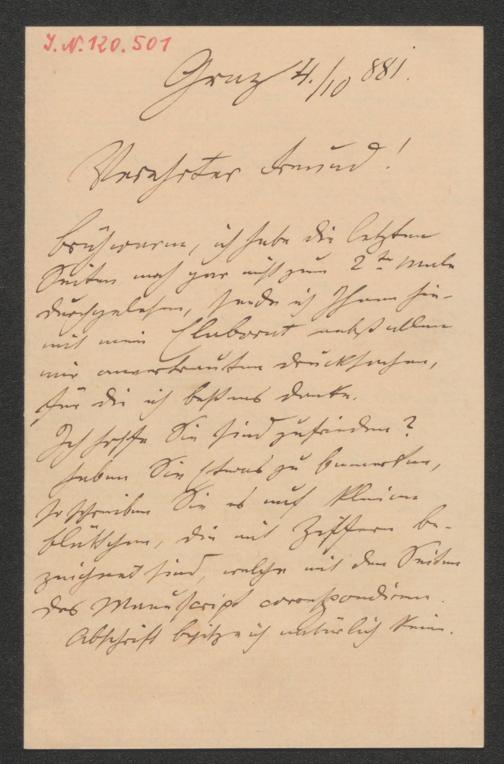 J. N. 120.501
Graz 4./10 881.
Verehrter Freund!
Brühwarm, ich habe die letzten
Seiten noch gar nicht zum 2ten Male
durchgelesen, sende ich Ihnen hie-
mit mein Elaborat nebst allen
mir anvertrauten Drucksachen,
für die ich bestens danke.
Ich hoffe Sie sind zufrieden?
Haben Sie Etwas zu bemerken,
so schreiben Sie es auf kleine
Blättchen, die mit Ziffern be-
zeichnet sind, welche mit den Seiten
des Manuscript correspondiren.
Abschrift besitze ich natürlich keine.